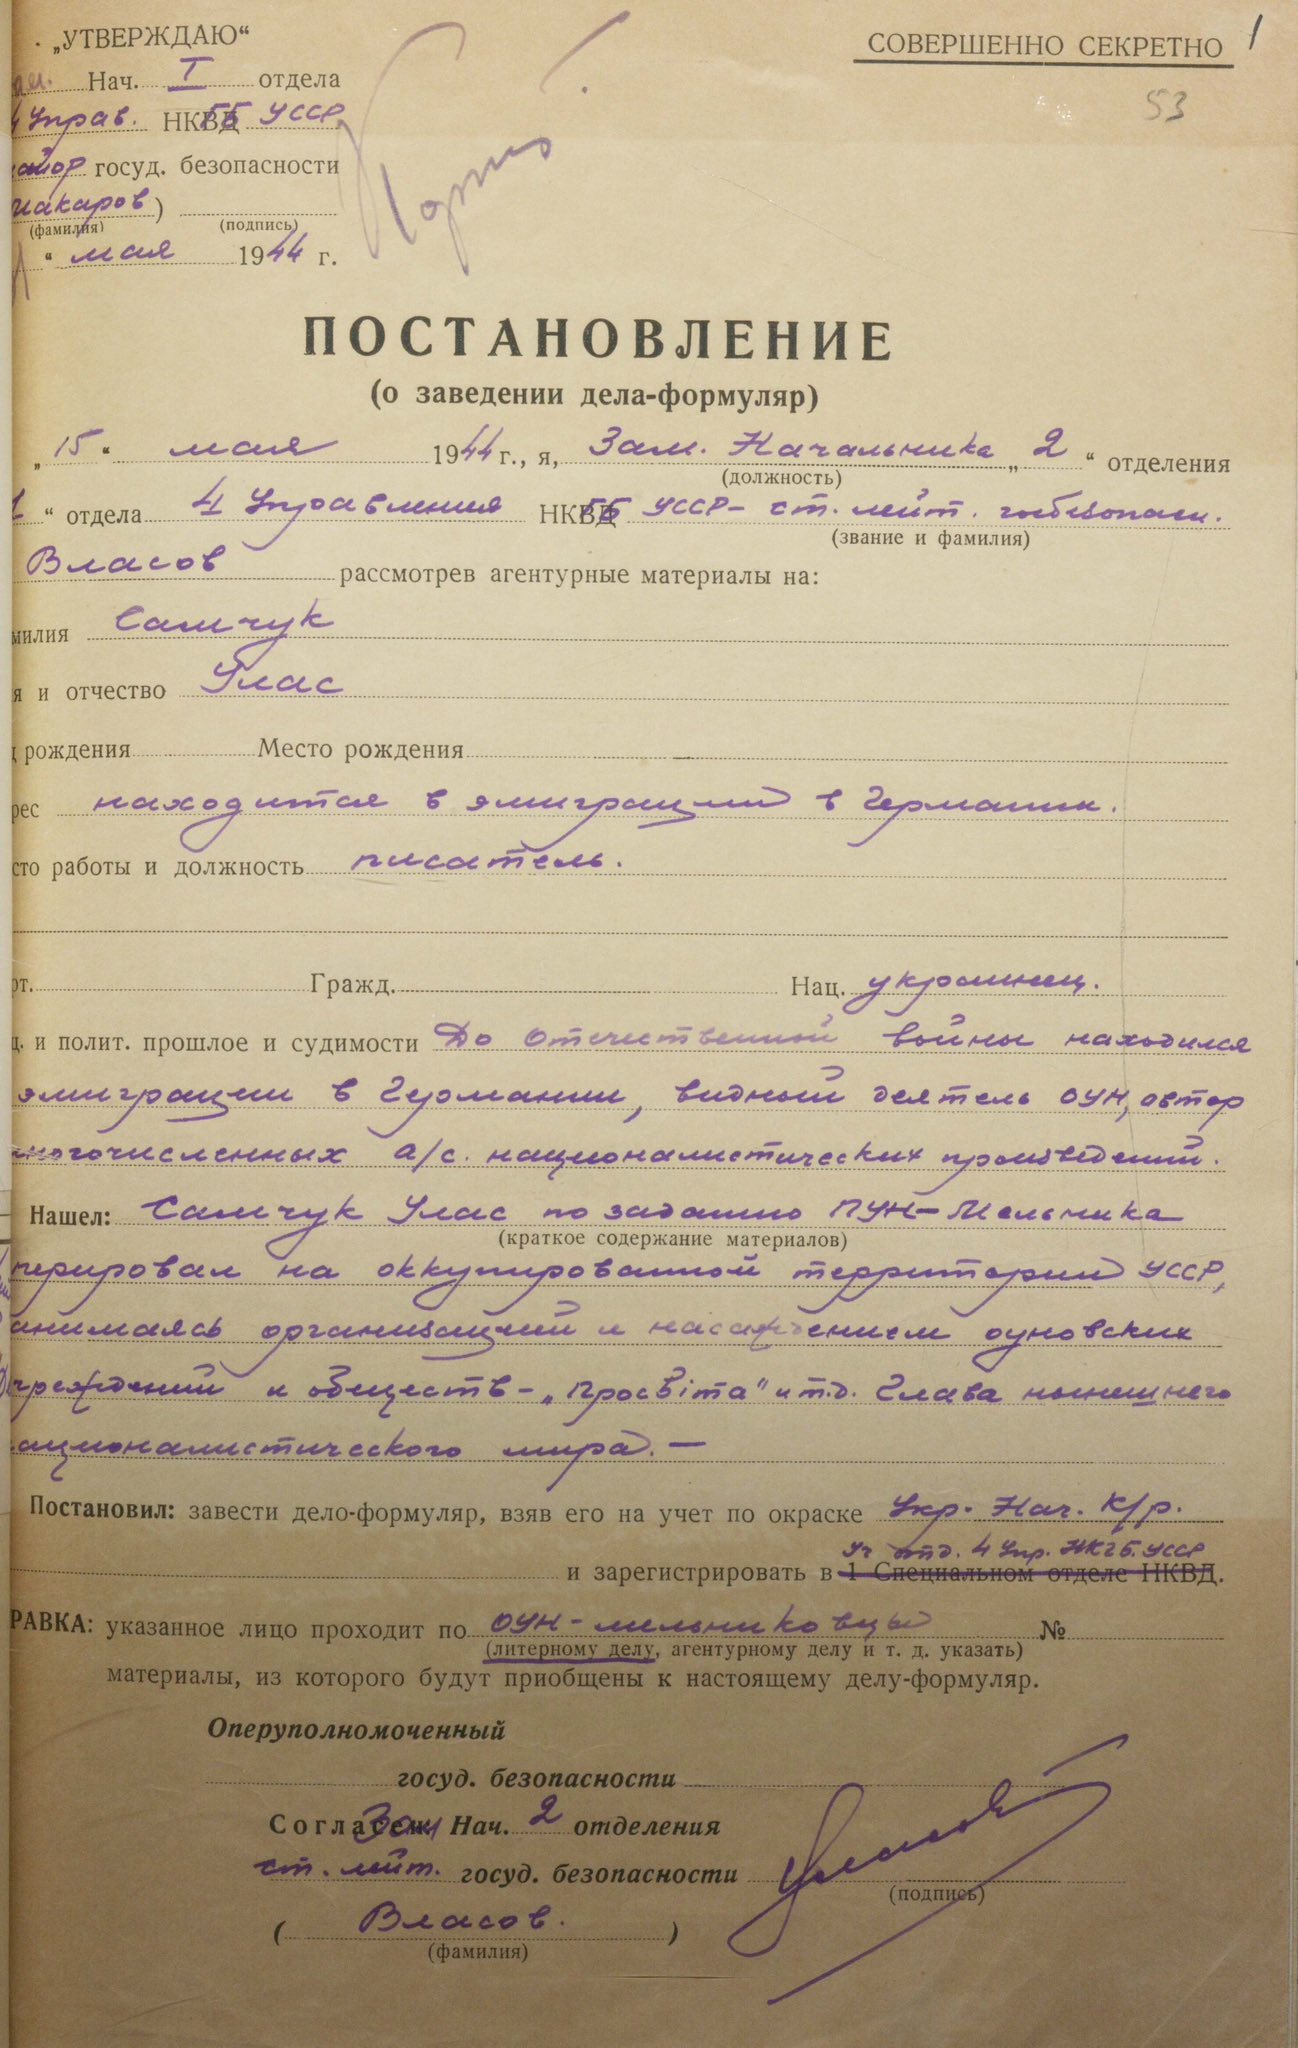 „УТВЕРЖДАЮ“
СОВЕРШЕННО СЕКРЕТНО 1
Нач. I отдела
53
4 Управ. НКГБ УССР
майор госуд. безопасности
)
(фамилия) (подпись)
“ мая 1944 г.
ПОСТАНОВЛЕНИЕ
(о заведении дела-формуляр)
„15“ мая 1944 г., я, Зам. Начальника „2“ отделения
(должность)
1 “ отдела 4 Управления НКГБ УССР – ст. лейт. госбезопасн.
(звание и фамилия)
Власов рассмотрев агентурные материалы на:
милия Самчук
я и отчество Улас
рождения Место рождения
рес находится в эмиграции в Германии.
сто работы и должность писатель.
рт. Гражд. Нац. украинец.
ц. и полит. прошлое и судимости До Отечественной войны находился
эмиграции в Германии, видный деятель ОУН, автор
многочисленных а/с. националистических произведений.
Нашел: Самчук Улас по заданию ПУН – Мельника
(краткое содержание материалов)
перировал на оккупированной территории УССР,
анимаясь организацией и насаждением оуновских
чреждений и обществ – „Просвіта“ и т.д. Глава нынешнего
ационалистического мира. –
Постановил: завести дело-формуляр, взяв его на учет по окраске Укр. Нац. к/р.
Уч отд. 4 Упр. НКГБ УССР
и зарегистрировать в 1 Специальном отделе НКВД.
РАВКА: указанное лицо проходит по ОУН – мельниковцы №
(литерному делу, агентурному делу и т. д. указать)
материалы, из которого будут приобщены к настоящему делу-формуляр.
Оперуполномоченный
госуд. безопасности
Согласен: Зам Нач. 2 отделения
ст. лейт. госуд. безопасности
(подпись)
( Власов. )
(фамилия)